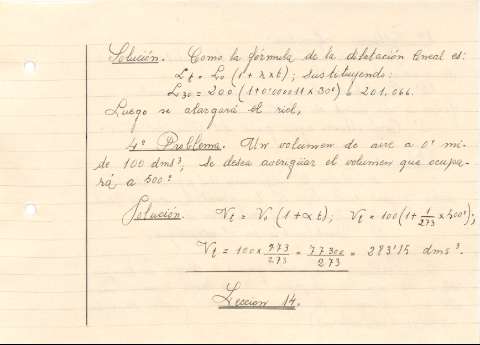 Solución. Como la fórmula de la dilatación lineal es:
Lt = Lo (1 + λ x t); sustituyendo:
L30 = 200 (1 + 0'000011 x 30°) = 201,066.
Luego se alargará el riel,
4º Problema. Un volumen de aire a 0° mi-
de 100 dms³, se desea averigüar el volumen que ocupa-
rá a 500°
Solución. Vt = Vo (1 + α t); Vt = 100 (1 + 1/273 x 500°);
Vt = 100 x 773/273 = 77300/273 = 283'15 dms³.
Leccion 14.